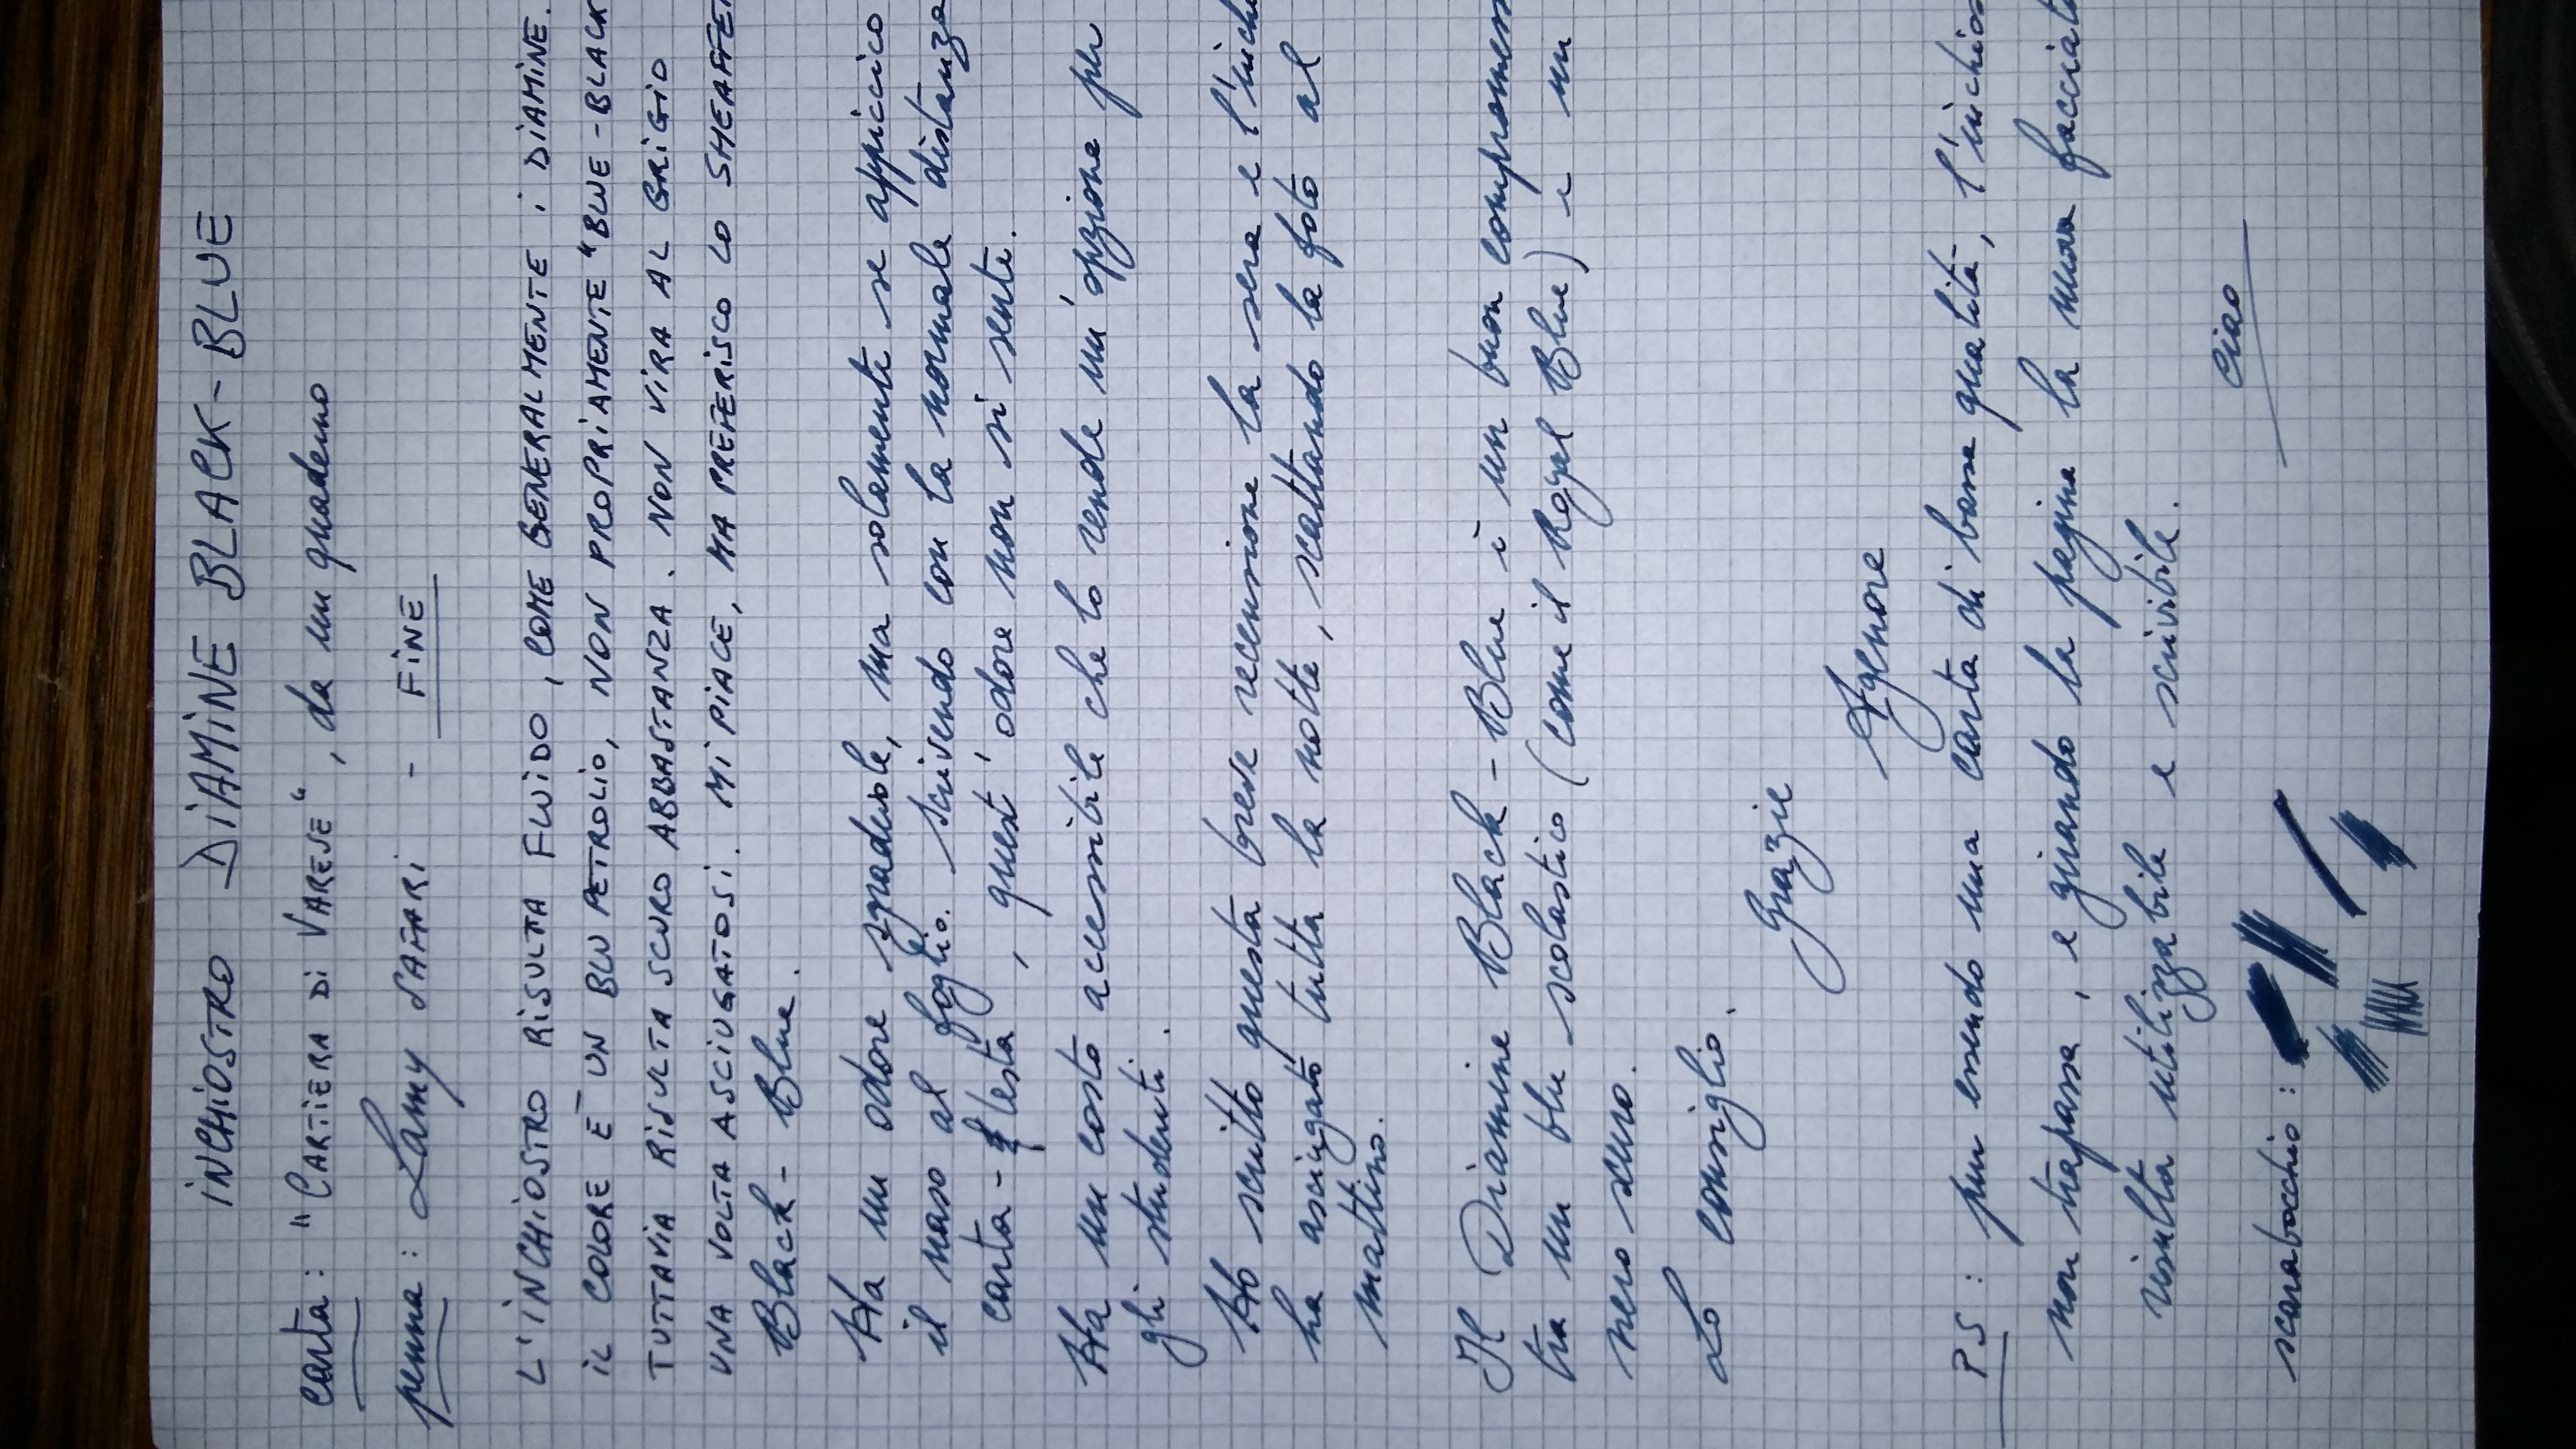 INCHIOSTRO DIAMINE BLACK-BLUE
carta: "CARTIERA DI VARESE", da un quaderno
penna: Lamy SAFARI - FINE
L'INCHIOSTRO RISULTA FLUIDO, COME GENERALMENTE i DIAMINE.
IL COLORE È UN BLU PETROLIO, NON PROPRIAMENTE "BLUE-BLACK
TUTTAVIA RISULTA SCURO ABBASTANZA. NON VIRA AL GRIGIO
UNA VOLTA ASCIUGATOSI. MI PIACE, MA PREFERISCO LO SHEAFFE
Black-Blue.
Ha un odore sgradevole, ma solamente se appiccico
il naso al foglio. Scrivendo con la normale distanza
carta-testa, quest'odore non si sente.
Ha un costo accessibile che lo rende un'opzione per
gli studenti.
Ho scritto questa breve recensione la sera e l'inch
ha asciugato tutta la notte, scattando la foto al
mattino.
Il Diamine Black-Blue è un buon compromess
tra un blu scolastico (come il Royal Blue) e un
nero scuro.
Lo consiglio.
Grazie
Agenore
PS: pur essendo una carta di bassa qualità, l'inchios
non trapassa, e girando la pagina la nuova facciata
risulta utilizzabile e scrivibile.
ciao
scarabocchio: